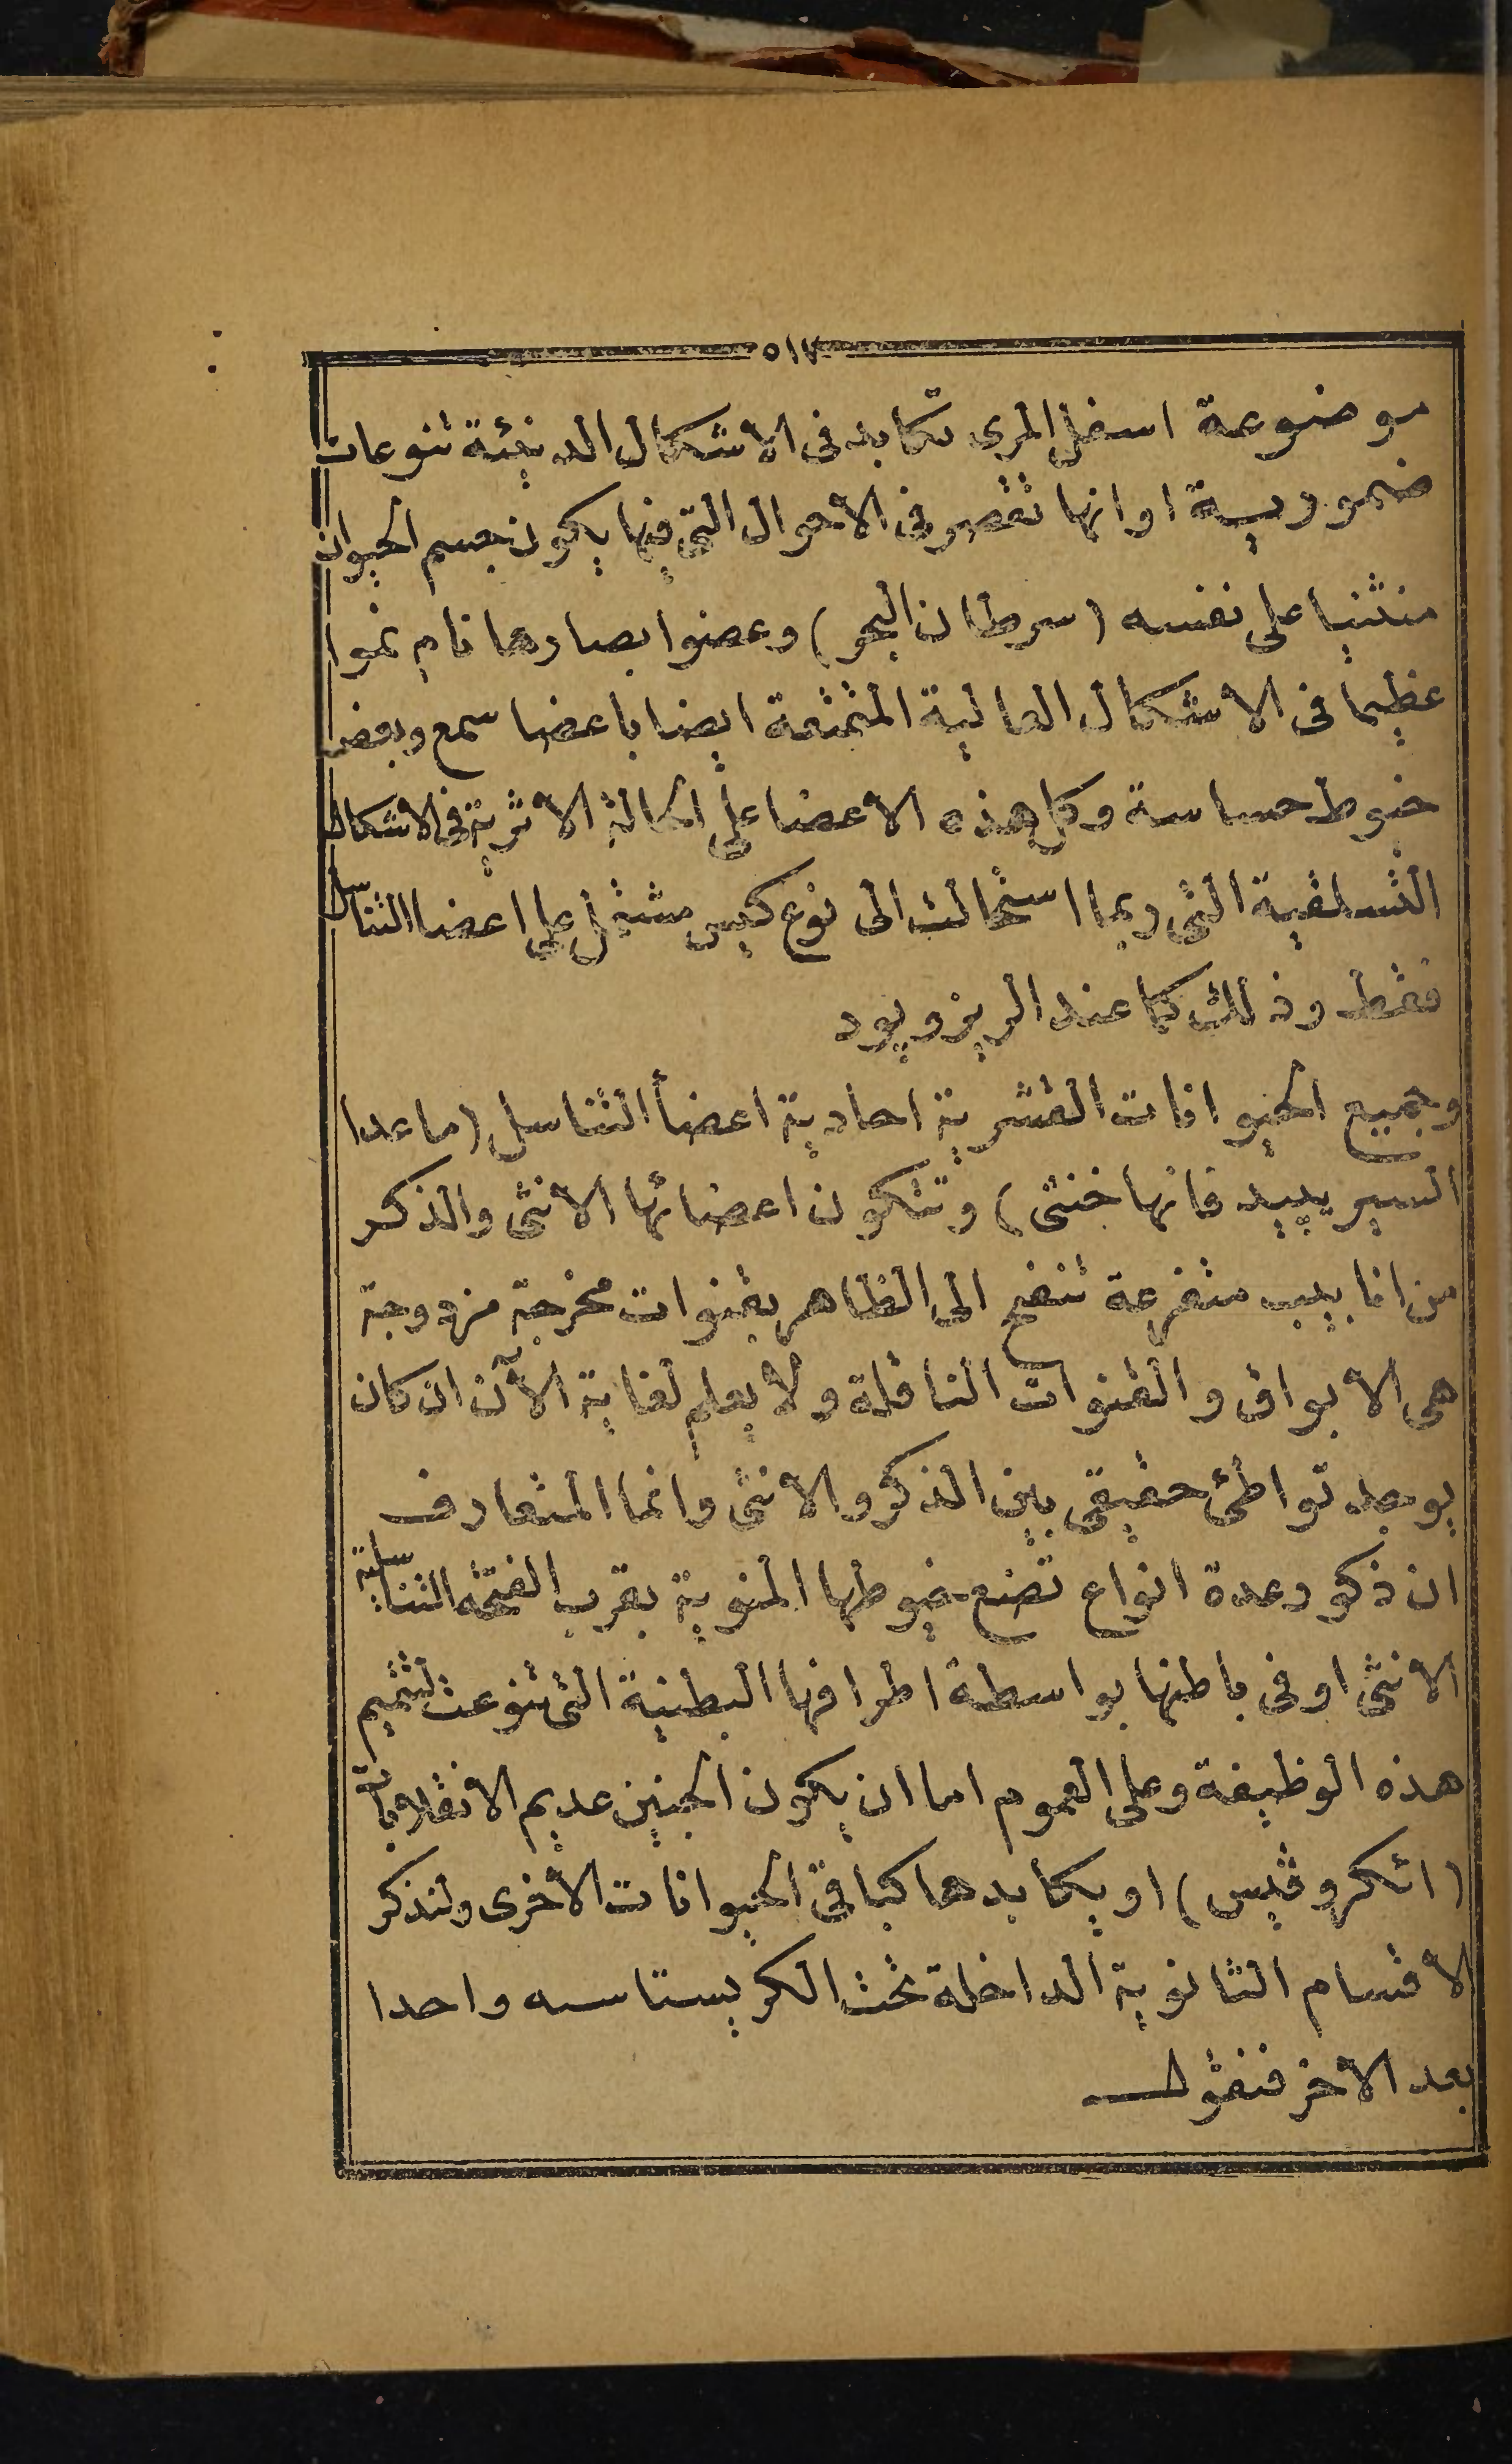 ٥١٧
موضوعة اسفل المرى تكابد فى الاشكال الدنيئة تنوعات
ضمورية اوانها تقصر فى الاحوال التى فيها يكون جسم الحيوان
منثنيا على نفسه (سرطان البحر) وعضوا بصارها نام نموا
عظيما فى الاشكال العالية المتمتعة ايضا باعضا سمع وبعض
خيوط حساسة وكل هذه الاعضا على الحالة الاثرية فى الاشكال
التسلقية التى ربما استحالت الى نوع كيس مشتمل على اعضا التناسل
فقط وذلك كما عند الريزوپود
وجميع الحيوانات القشرية احادية اعضأ التناسل (ماعدا
السيريپيد فانها خنثى) وتتكون اعضائها الانثى والذكر
من انابيب متفرعة تنفتح الى الظاهر بقنوات مخرجة مزدوجة
هى الابواق والقنوات الناقلة ولا يعلم لغاية الآن ان كان
يوجد تواطئ حقيقى بين الذكر والانثى وانما المتعارف
ان ذكور عدة انواع تضع خيوطها المنوية بقرب الفتحة التناسلية
الانثى او فى باطنها بواسطة اطرافها البطنية التى تنوعت لتتميم
هذه الوظيفة وعلى العموم اما ان يكون الجنين عديم الانقلابات
(ائكروڤيس) او يكابدها كما فى الحيوانات الأخرى ولنذكر
الاقسام الثانوية الداخلة تحت الكريستاسه واحدا
بعد الأخر فنقول